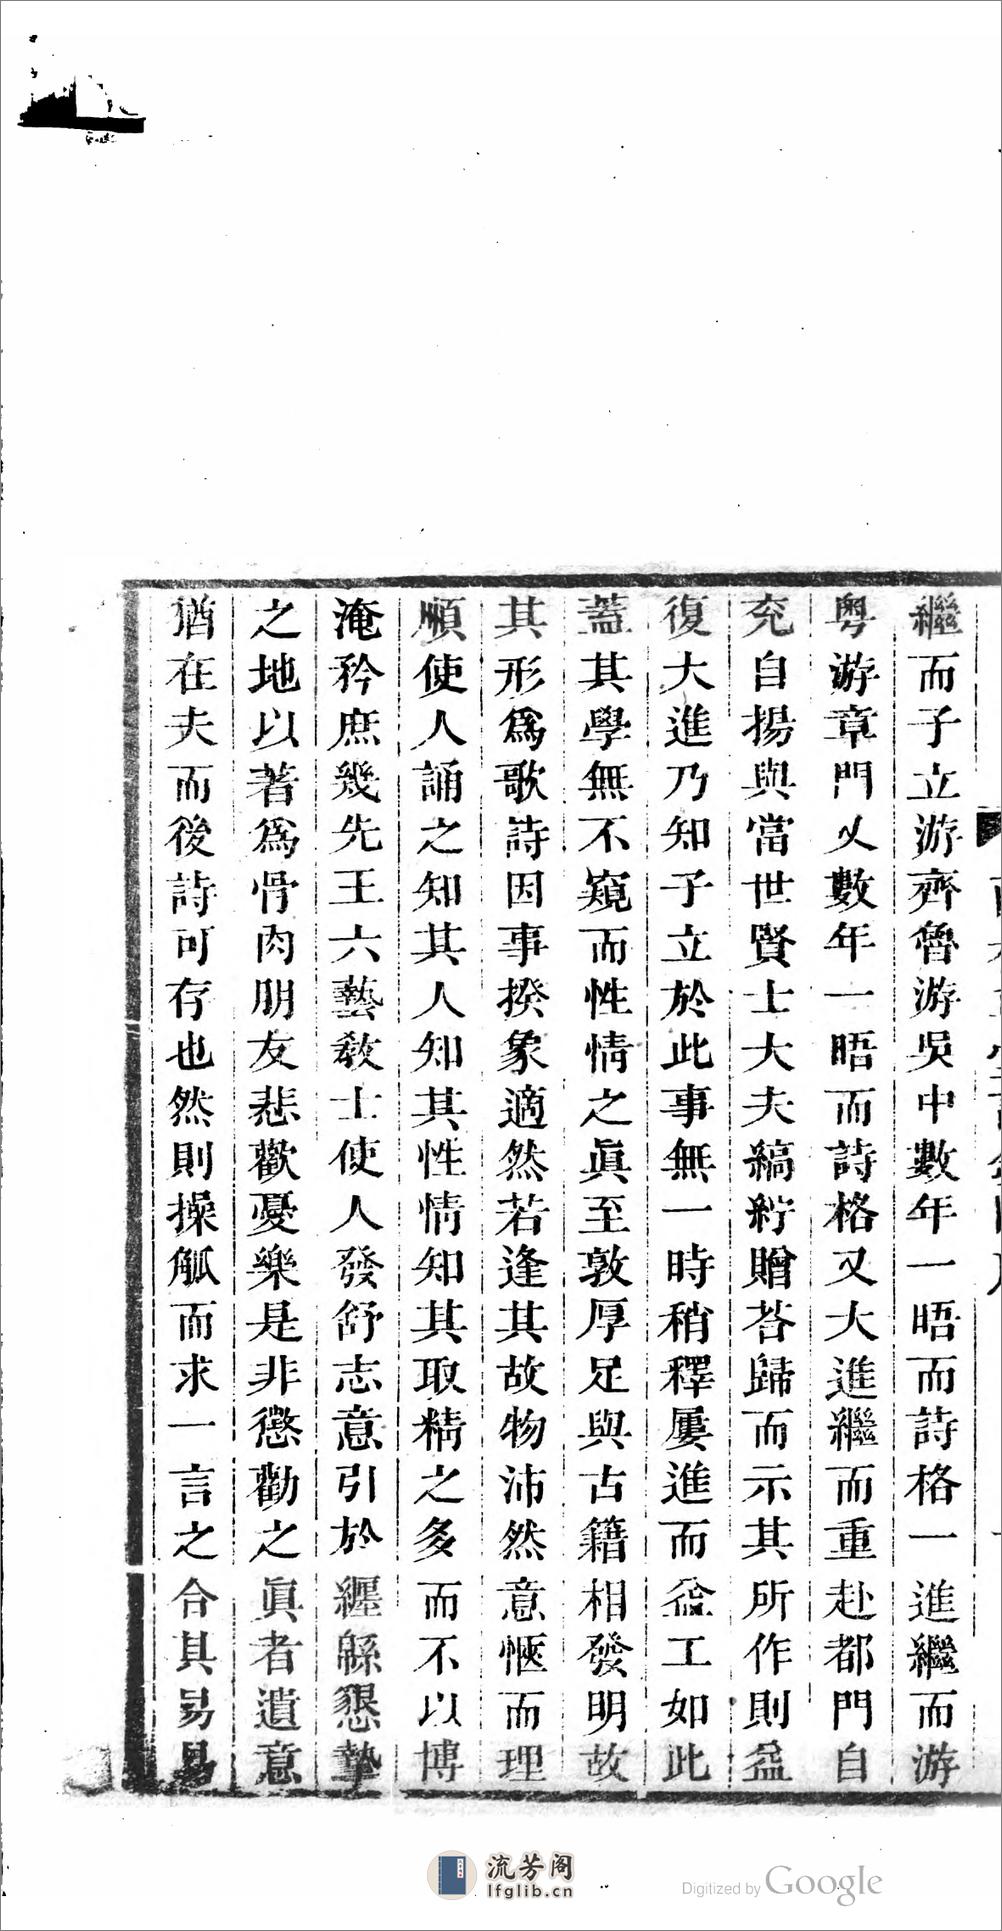 繼而子立游齊魯游吳中數年一晤而詩格一進繼而游
粵游章門乂數年一晤而詩格又大進繼而重赴都門自
充自揚與當世賢士大夫縞紵贈荅歸而示其所作則益
復大進乃知子立於此事無一時稍釋屢進而益工如此
蓋其學無不窺而性情之眞至敦厚足與古籍相發明故
其形爲歌詩因事揆象適然若逢其故物沛然意愜而理
順使人誦之知其人知其性情知其取精之多而不以博
淹矜庶幾先王六藝敎士使人發舒志意引於纒緜懇摯
之地以著爲骨肉朋友悲歡憂樂是非懲勸之眞者遺意
猶在夫而後詩可存也然則操觚而求一言之合其易易
流芳阁
lfglib.cn
Digitized by Google